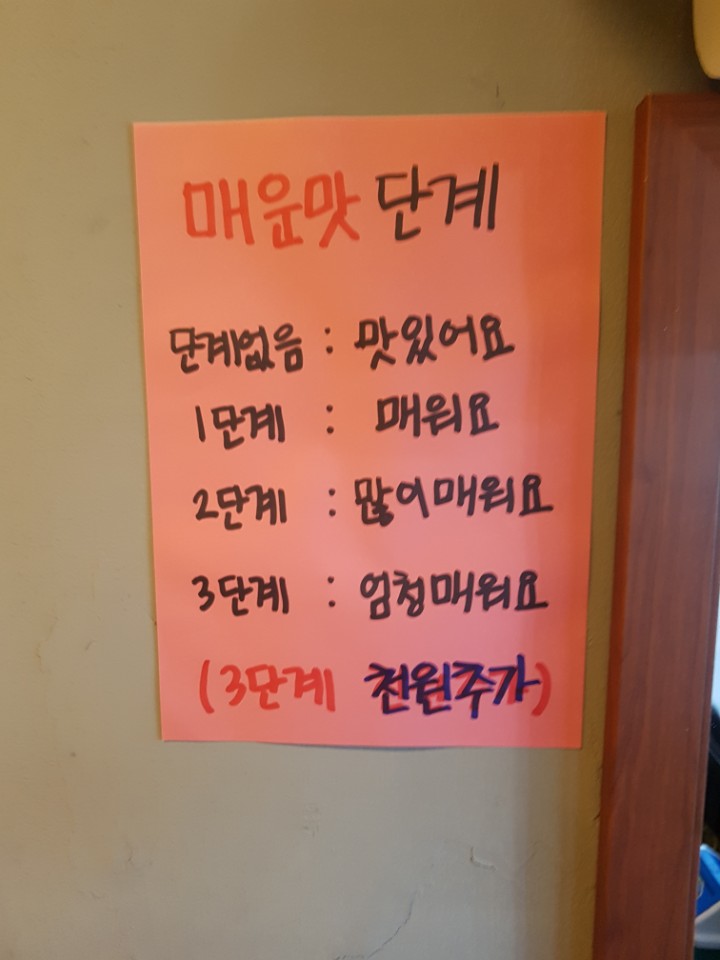 매운맛 단계
단계없음 : 맛있어요
1단계 : 매워요
2단계 : 많이매워요
3단계 : 엄청매워요
(3단계 천원추가)